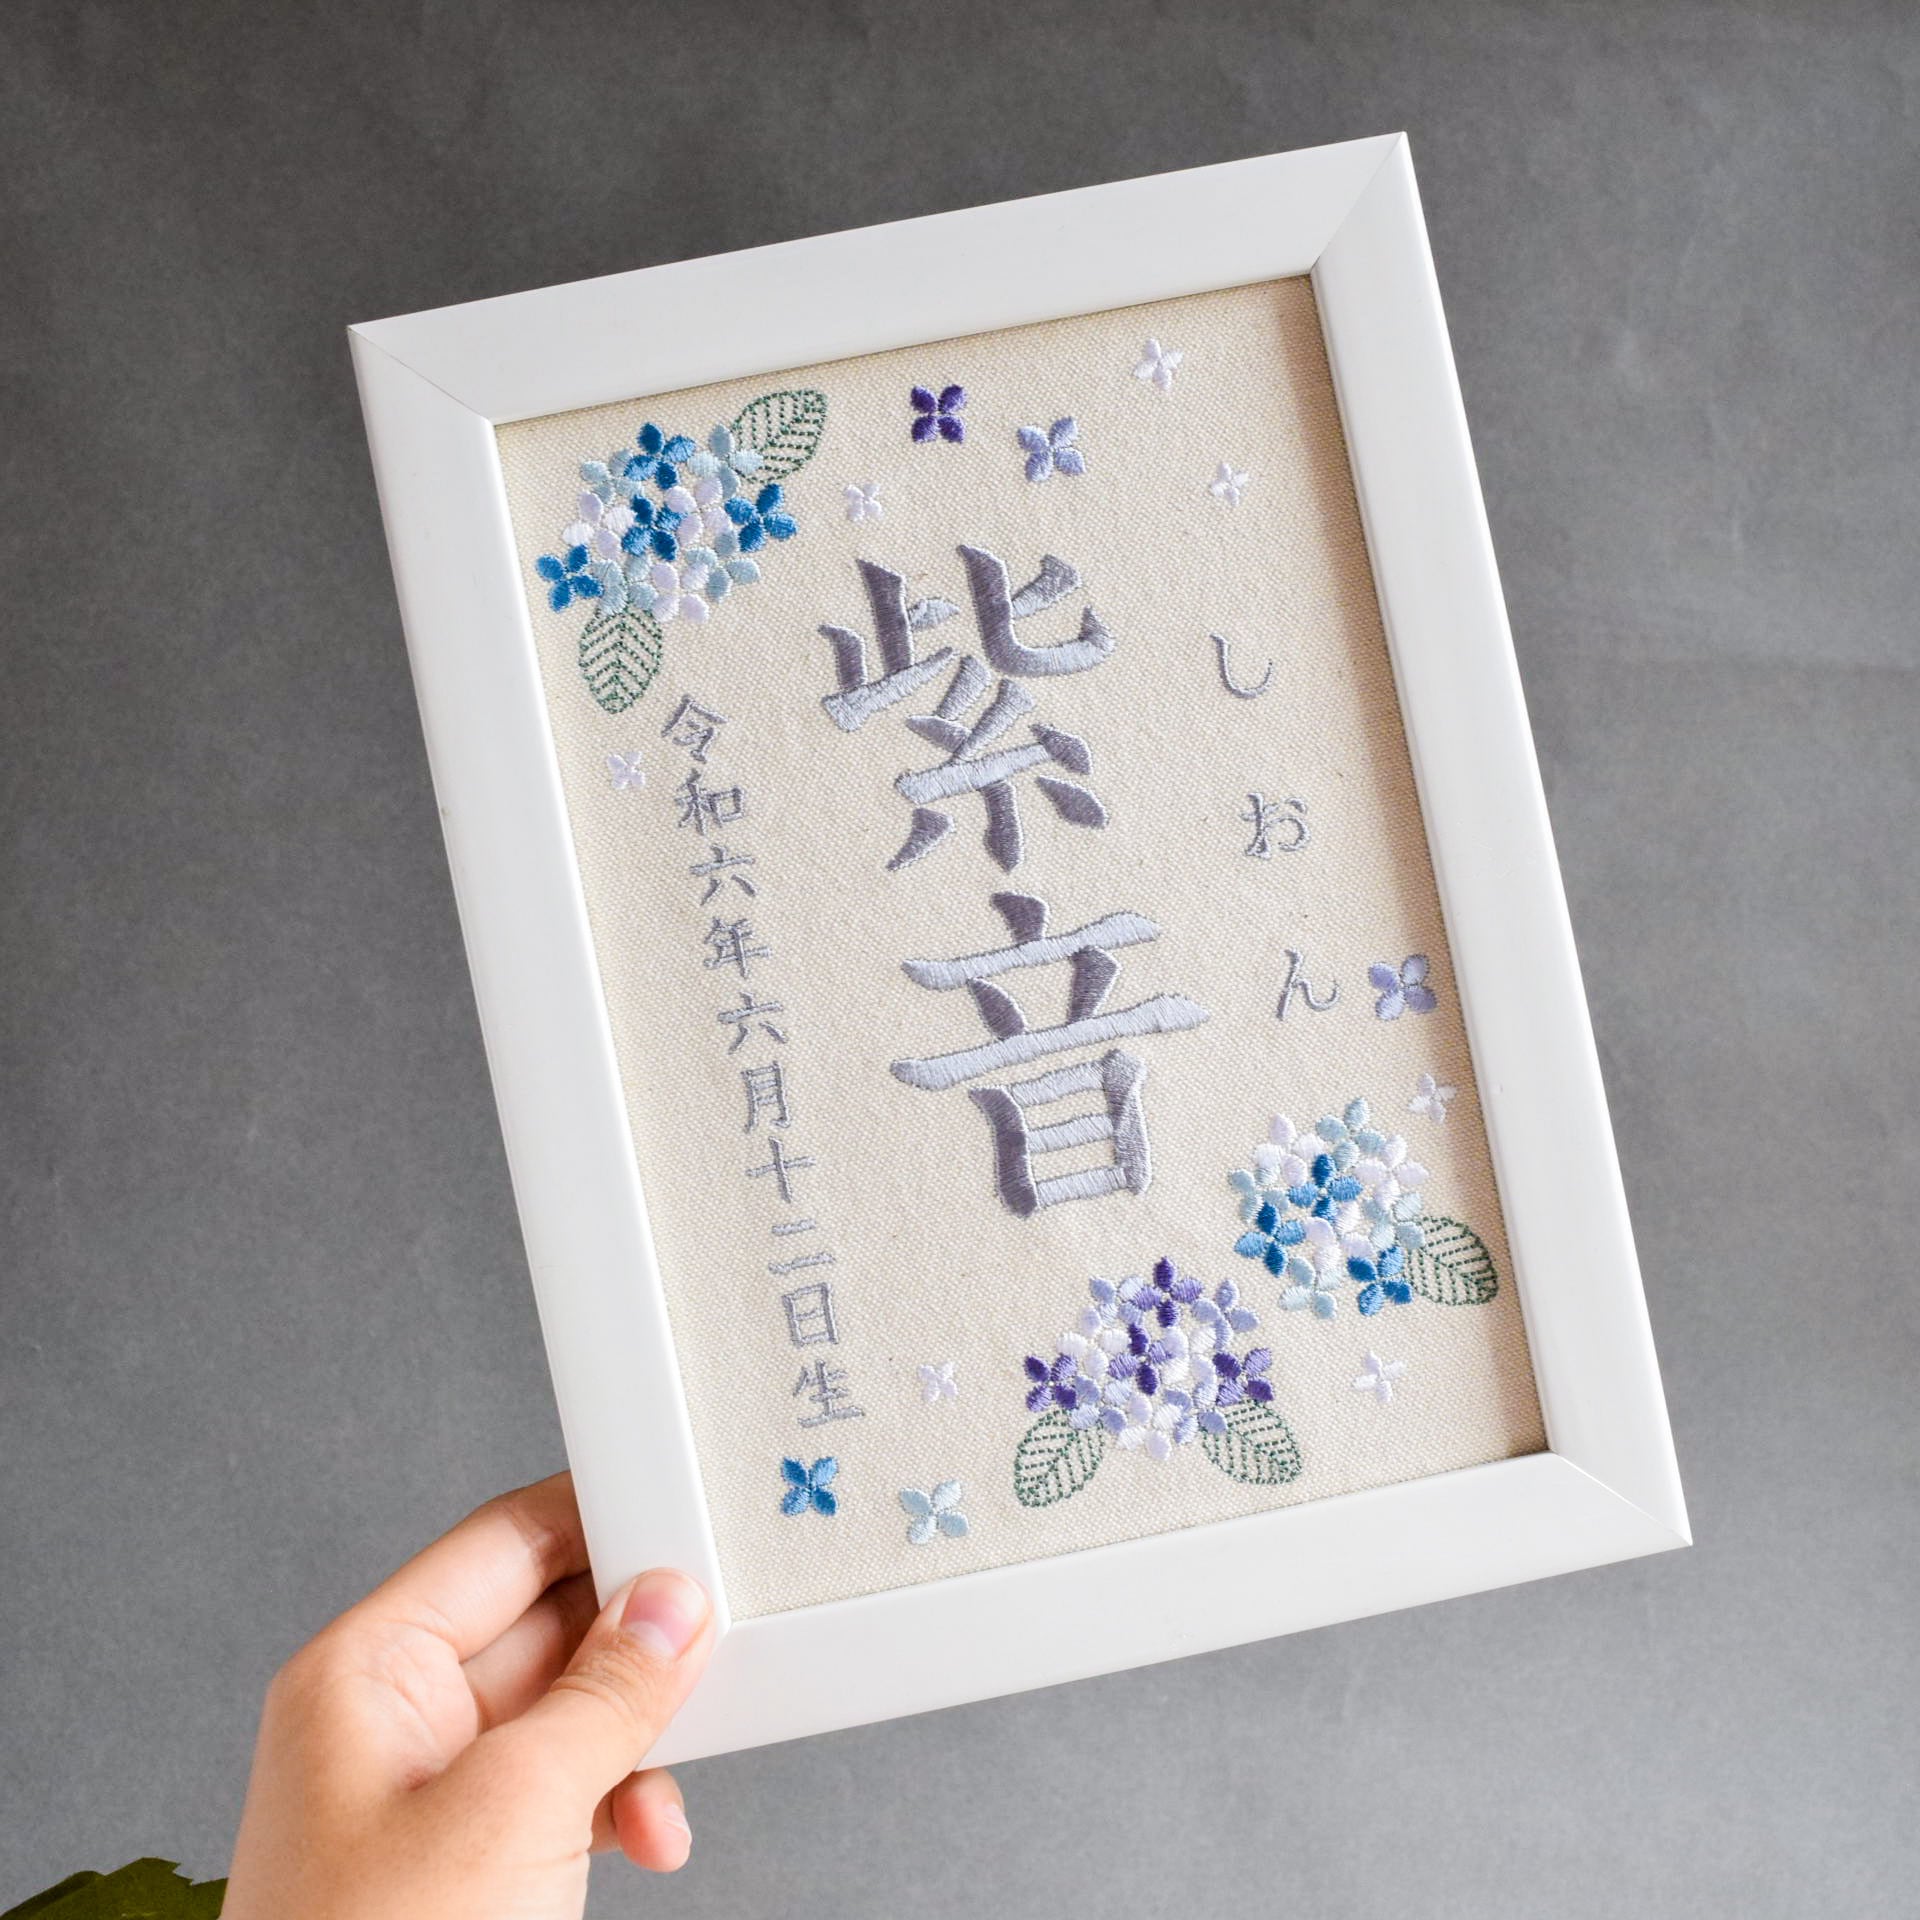 しおん
紫音
令和六年六月十二日生